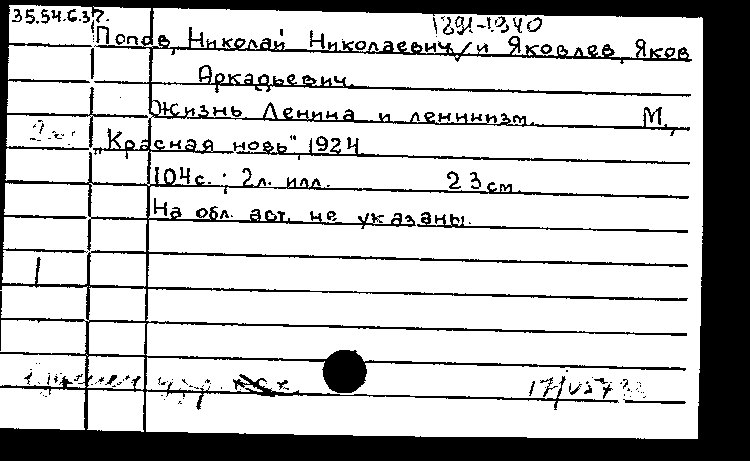 35.54.6.37.
1891-1940
Попов, Николай Николаевич, и Яковлев, Яков
Аркадьевич.
Жизнь Ленина и ленинизм. М.,
„Красная новь", 1924
104 с.; 2 л. илл. 23 см.
На обл. авт. не указаны.